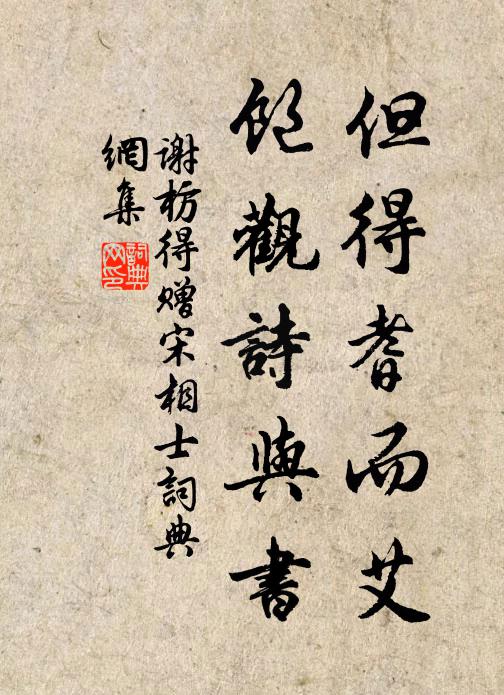 但得耆而艾
飽觀詩與書
謝枋得贈宋相士詞典
網集
詞典
网印